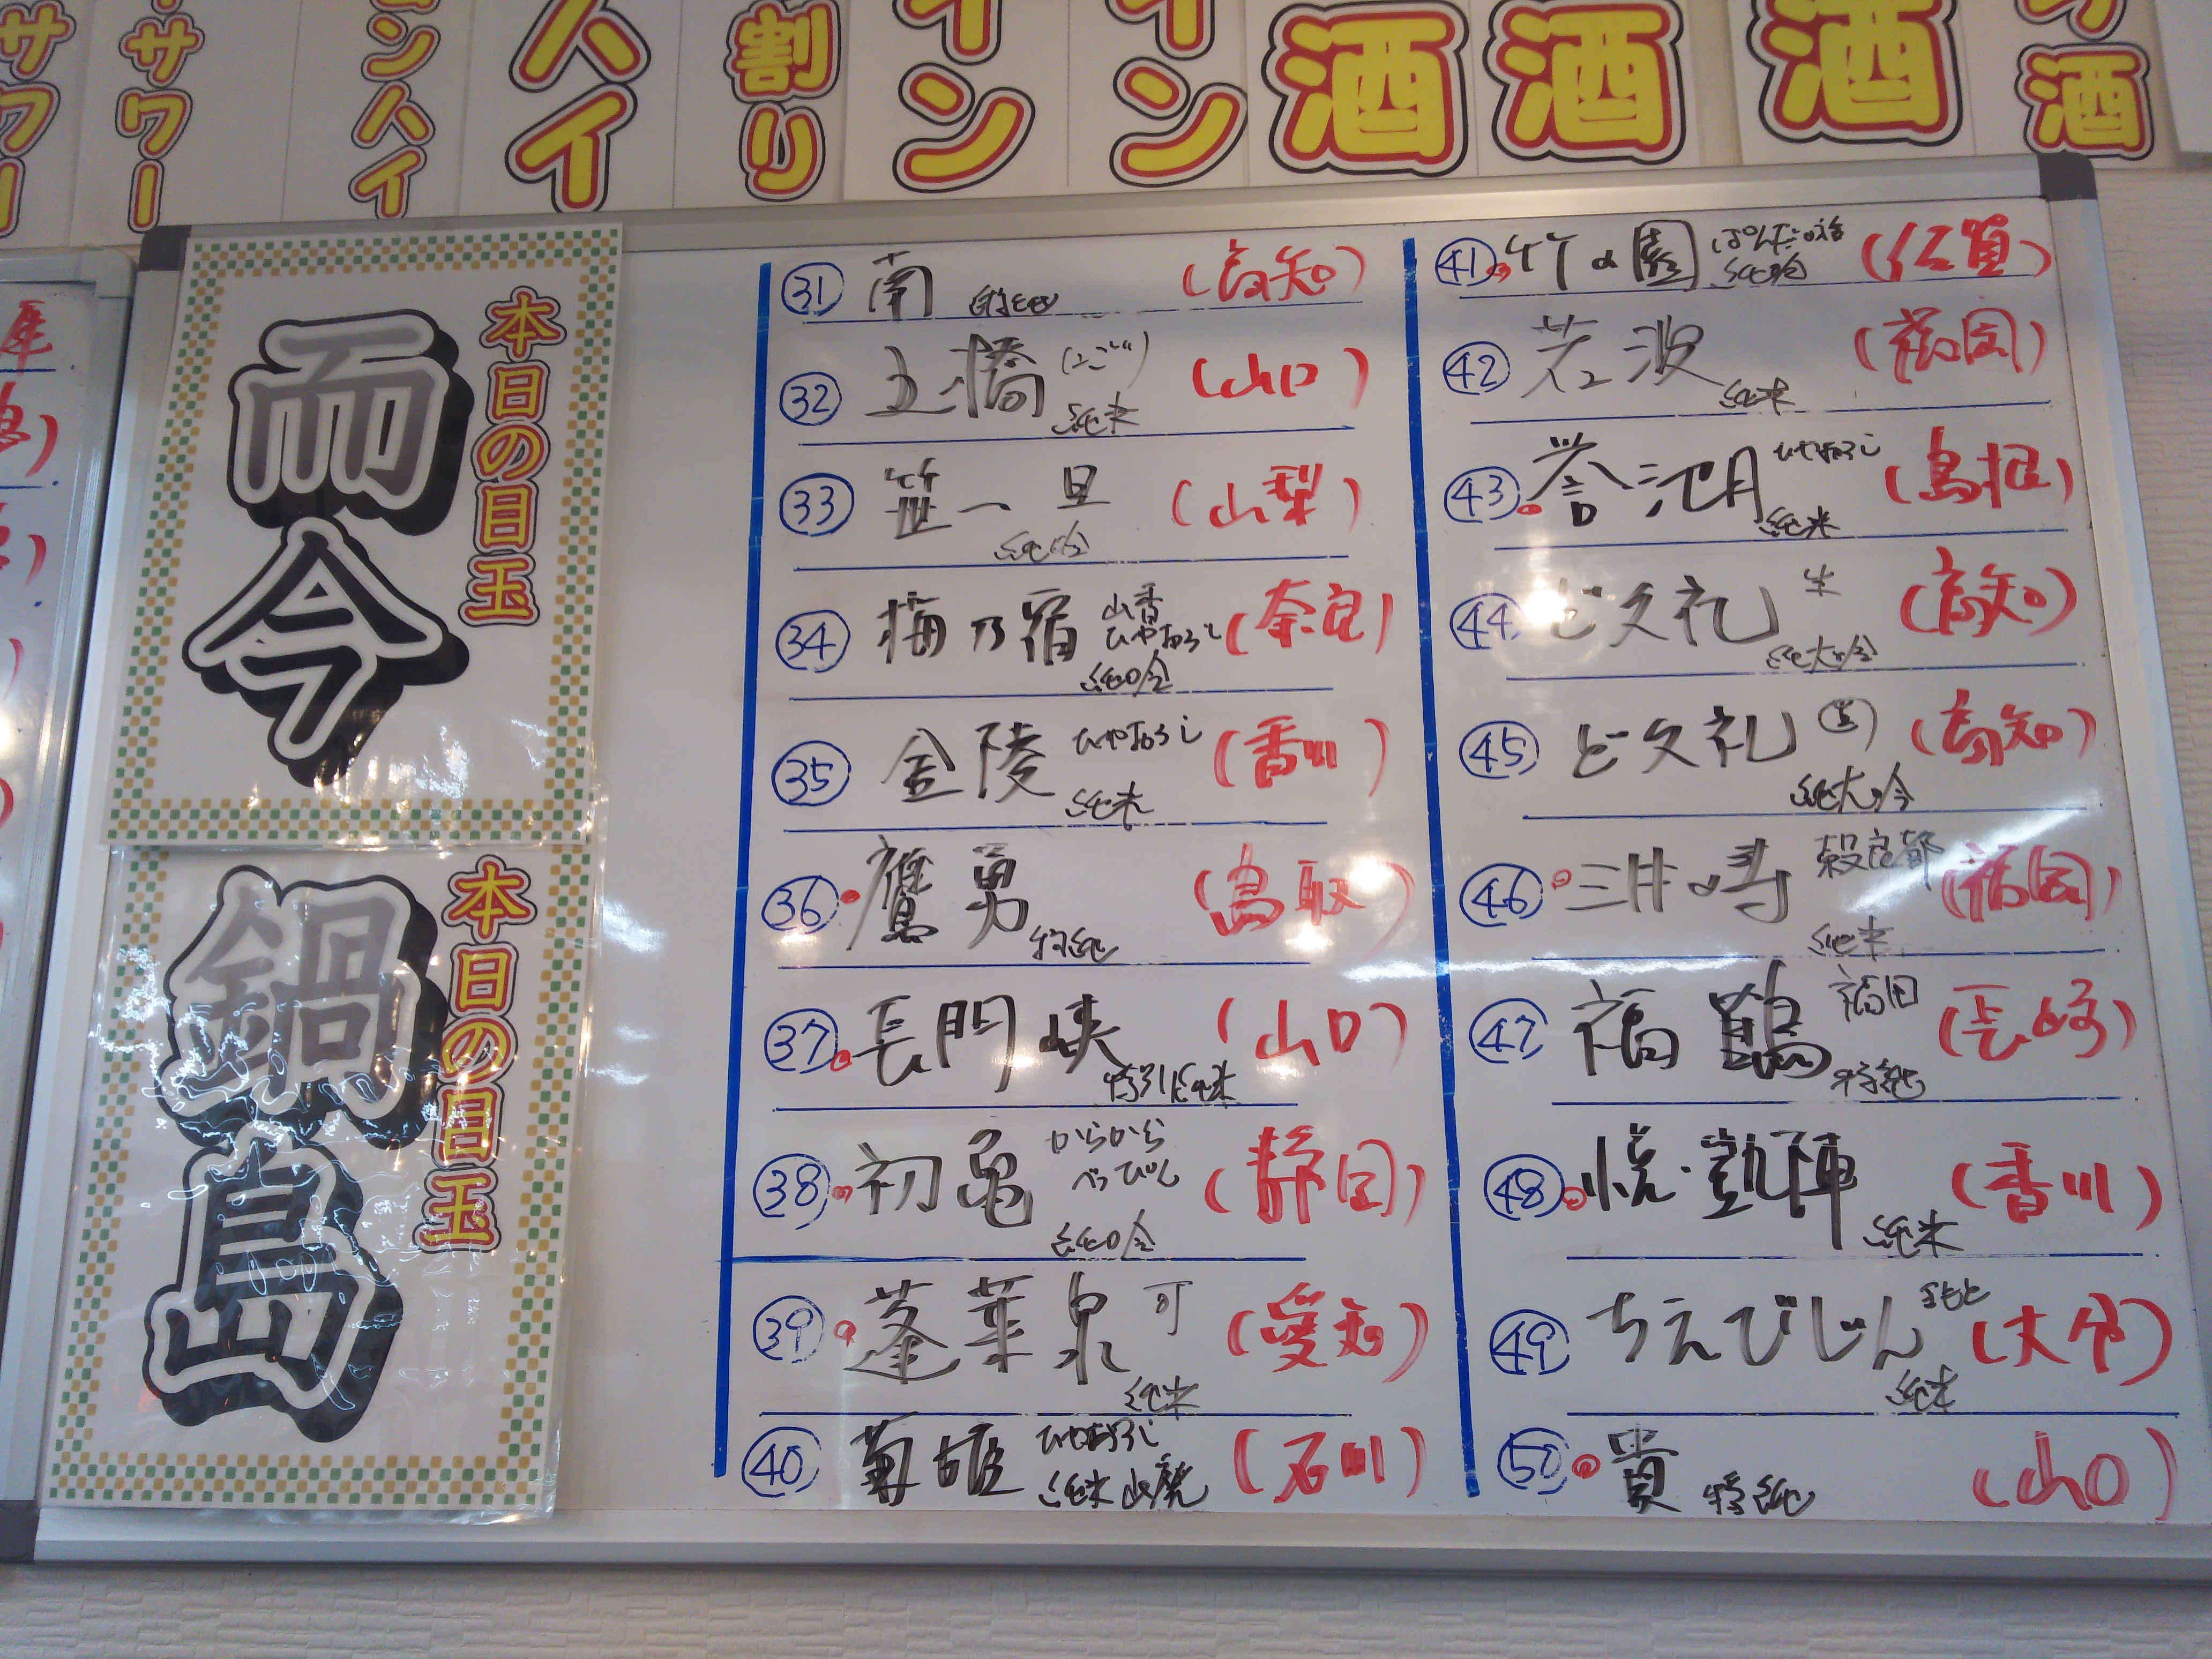 サワー
サワー
ンハイ
ハイ
割り
イン
イン
酒
酒
酒
酒
本日の目玉
而今
本日の目玉
鍋島
㉛ 南 特純 (高知)
㉜ 五橋 (ごごう) 純米 (山口)
㉝ 笹一 旦 純吟 (山梨)
㉞ 梅乃宿 山香 ひやおろし 純吟 (奈良)
㉟ 金陵 ひやおろし 純米 (香川)
㊱ 鷹勇 特純 (鳥取)
㊲ 長門峡 特別純米 (山口)
㊳ 初亀 からから べっぴん 純吟 (静岡)
㊴ 蓬莱泉 可 純米 (愛知)
㊵ 菊姫 ひやおろし 純米 山廃 (石川)
㊶ 竹の園 純吟 (佐賀)
㊷ 若波 純米 (福岡)
㊸ 誉池月 ひやおろし 純米 (島根)
㊹ ど文礼 生 純大吟 (高知)
㊺ ど文礼 純大吟 (高知)
㊻ 三井の寿 穀良都 純米 (福岡)
㊼ 福鶴 福田 特純 (長崎)
㊽ 悦・凱陣 純米 (香川)
㊾ ちえびじん 純米 (大分)
㊿ 貴 特純 (山口)